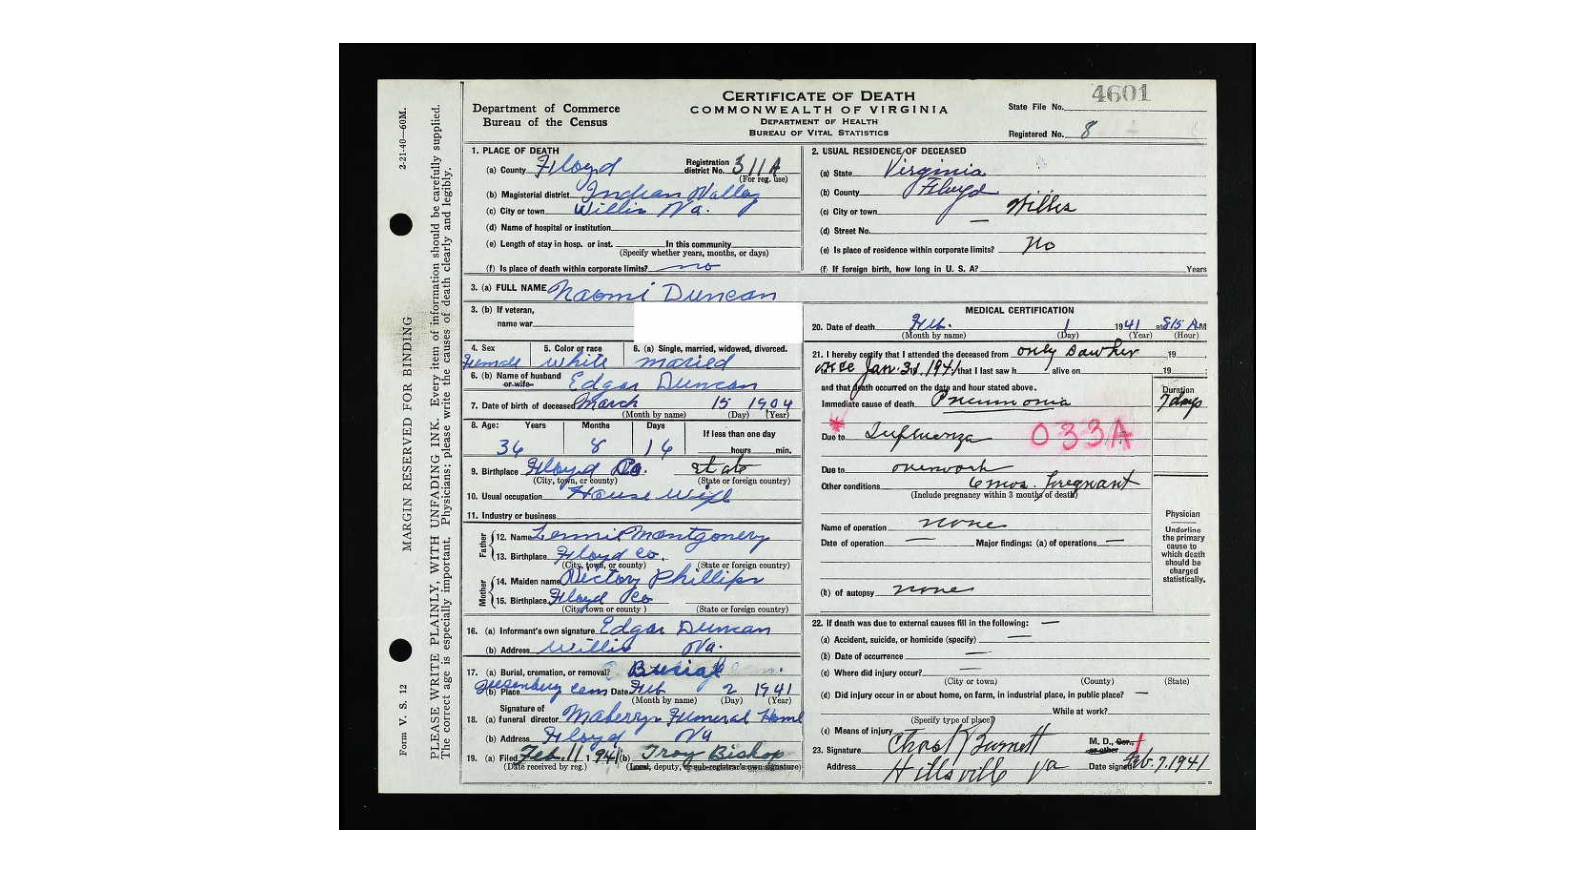 4601
CERTIFICATE OF DEATH
COMMONWEALTH OF VIRGINIA
DEPARTMENT OF HEALTH
BUREAU OF VITAL STATISTICS
Department of Commerce
Bureau of the Census
State File No.
Registered No. 8
2-21-40—60M.
MARGIN RESERVED FOR BINDING
Form V. S. 12
PLEASE WRITE PLAINLY, WITH UNFADING INK. Every item of information should be carefully supplied.
The correct age is especially important. Physicians: please write the causes of death clearly and legibly.
1. PLACE OF DEATH
(a) County Floyd Registration district No. 311A
(For reg. use)
(b) Magisterial district Indian Valley
(c) City or town Willis Va.
(d) Name of hospital or institution
(e) Length of stay in hosp. or inst. In this community
(Specify whether years, months, or days)
(f) Is place of death within corporate limits? no
2. USUAL RESIDENCE OF DECEASED
(a) State Virginia
(b) County Floyd
(c) City or town Willis
(d) Street No. —
(e) Is place of residence within corporate limits? No
(f) If foreign birth, how long in U. S. A? Years
3. (a) FULL NAME Naomi Duncan
3. (b) If veteran,
name war
4. Sex 5. Color or race 6. (a) Single, married, widowed, divorced.
Female white maried
6. (b) Name of husband
or wife Edgar Duncan
7. Date of birth of deceased March 15 1904
(Month by name) (Day) (Year)
8. Age: Years Months Days If less than one day
36 8 16 hours min.
9. Birthplace Floyd Co. state
(City, town, or county) (State or foreign country)
10. Usual occupation House Wife
11. Industry or business
Father
12. Name Lennie Montgomery
13. Birthplace Floyd Co.
(City, town, or county) (State or foreign country)
Mother
14. Maiden name Victory Phillips
15. Birthplace Floyd Co
(City, town or county ) (State or foreign country)
16. (a) Informant's own signature Edgar Duncan
(b) Address Willis Va.
17. (a) Burial, cremation, or removal? Burial
(b) Place Cem Date Feb 2 1941
(Month by name) (Day) (Year)
Signature of
18. (a) funeral director Maberry Funeral Home
(b) Address Floyd Va
19. (a) Filed Feb. 11, 1941 (b) Troy Bishop
(Date received by reg.) (Local, deputy, or sub-registrar's own signature)
MEDICAL CERTIFICATION
20. Date of death Feb. 1 1941 at 815 A M
(Month by name) (Day) (Year) (Hour)
21. I hereby certify that I attended the deceased from only saw her 19
Jan. 31, 1941 that I last saw h alive on 19 ;
and that death occurred on the date and hour stated above.
Duration
Immediate cause of death Pneumonia 7 days
Due to Influenza 033A
Due to overwork
Other conditions 6 mos. pregnant
(Include pregnancy within 3 months of death)
Name of operation none
Date of operation — Major findings: (a) of operations —
(b) of autopsy none
Physician
Underline
the primary
cause to
which death
should be
charged
statistically.
22. If death was due to external causes fill in the following: —
(a) Accident, suicide, or homicide (specify) —
(b) Date of occurrence —
(c) Where did injury occur? —
(City or town) (County) (State)
(d) Did injury occur in or about home, on farm, in industrial place, in public place? —
While at work?
(Specify type of place)
(e) Means of injury
23. Signature Chas K Burnett M. D., Cor., or other
Address Hillsville Va Date signed Feb. 7, 1941